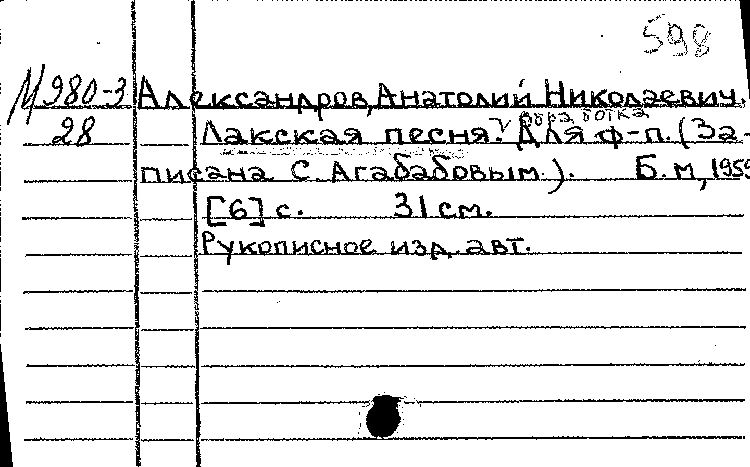 598
М 980-3 Александров, Анатолий Николаевич.
обработка
28 Лакская песня. Для ф-п. (За-
писана С. Агабабовым.). Б.м, 1959
[6] с. 31 см.
Рукописное изд. авт.